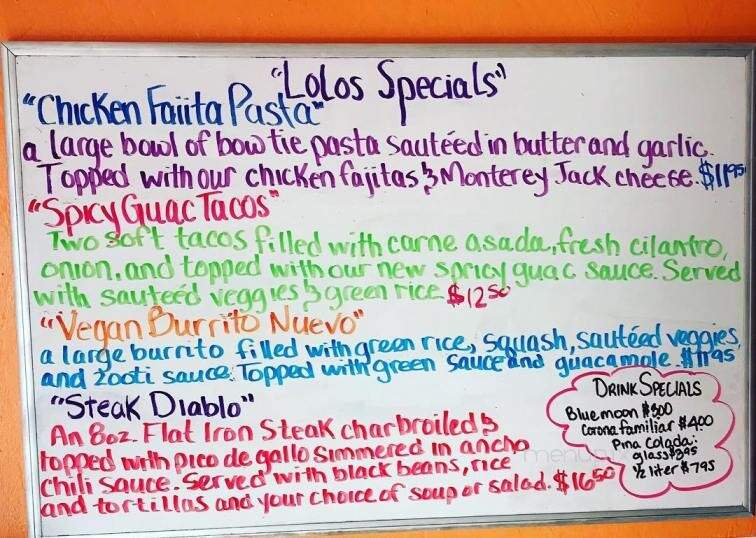 "Lolos Specials"
"Chicken Fajita Pasta"
a large bowl of bow tie pasta sautéed in butter and garlic.
Topped with our chicken fajitas & Monterey Jack cheese. $11.95
"Spicy Guac Tacos"
Two soft tacos filled with carne asada, fresh cilantro,
onion, and topped with our new spricy guac sauce. Served
with sauteéd veggies & green rice $12.50
"Vegan Burrito Nuevo"
a large burrito filled with green rice, squash, sautéed veggies,
and zooti sauce. Topped with green sauce and guacamole. $11.95
"Steak Diablo"
An 8oz. Flat Iron Steak charbroiled &
topped with pico de gallo simmered in ancho
chili sauce. Served with black beans, rice
and tortillas and your choice of soup or salad. $16.50
Drink Specials
Blue moon $3.00
Corona familiar $4.00
Pina Colada:
glass $3.95
½ liter $7.95